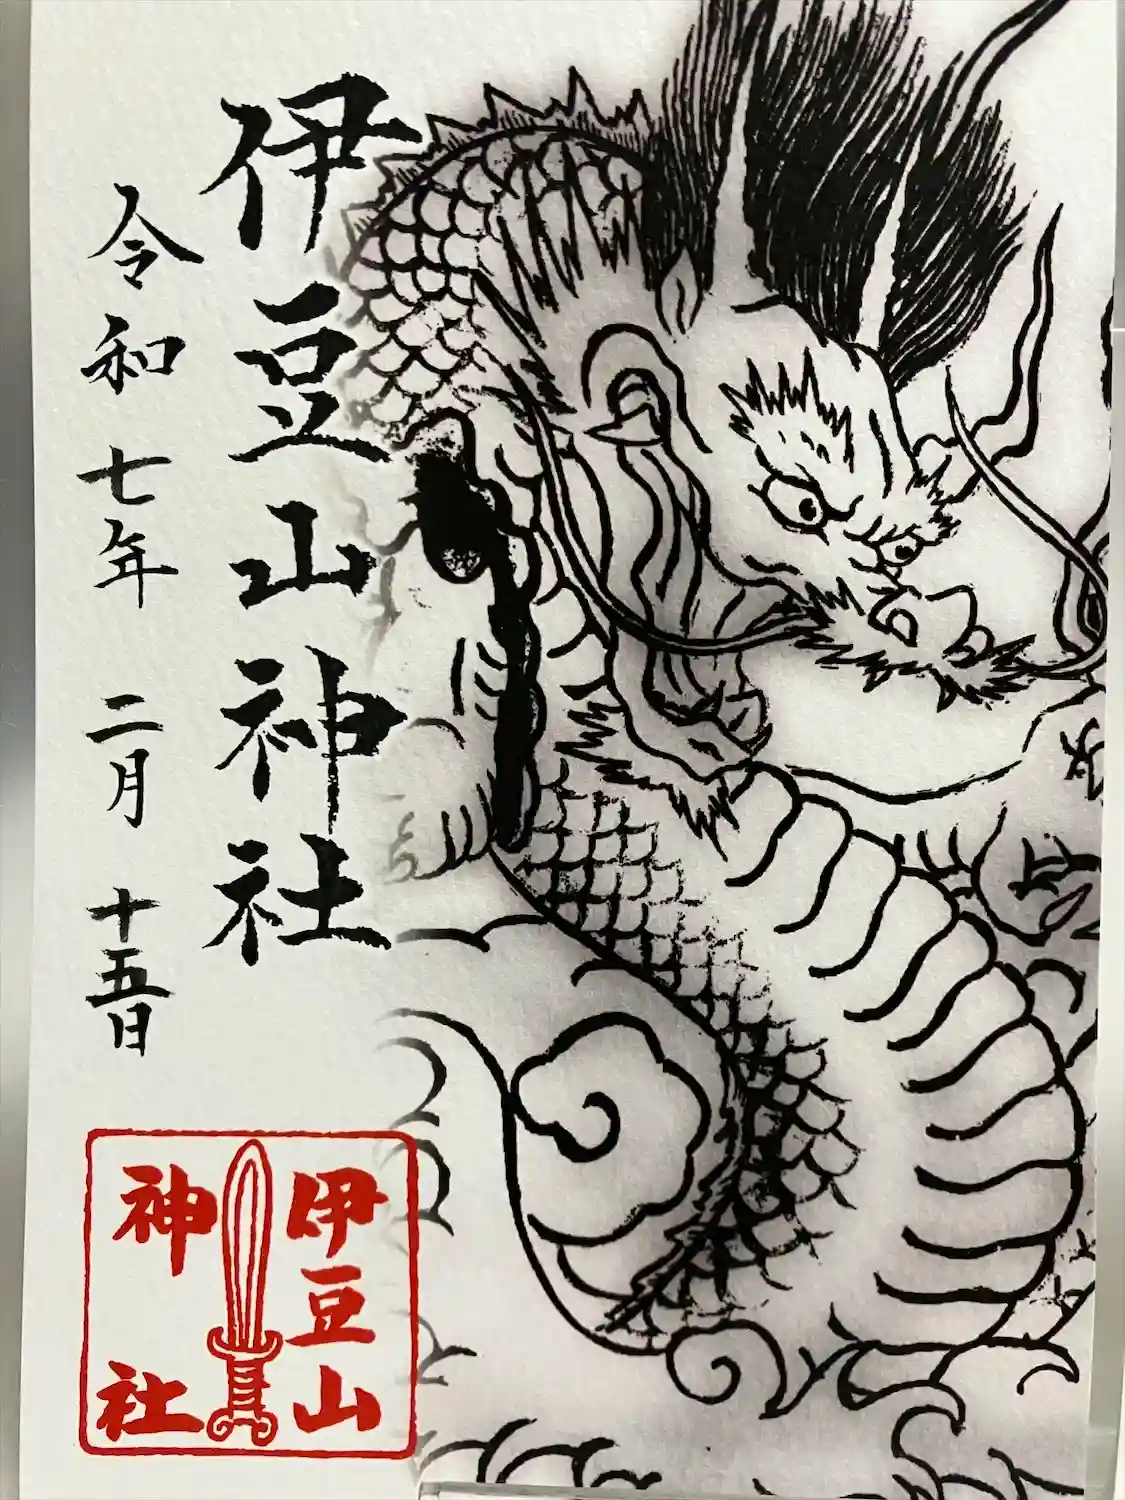 伊豆山神社
令和七年二月十五日
伊豆山
神社